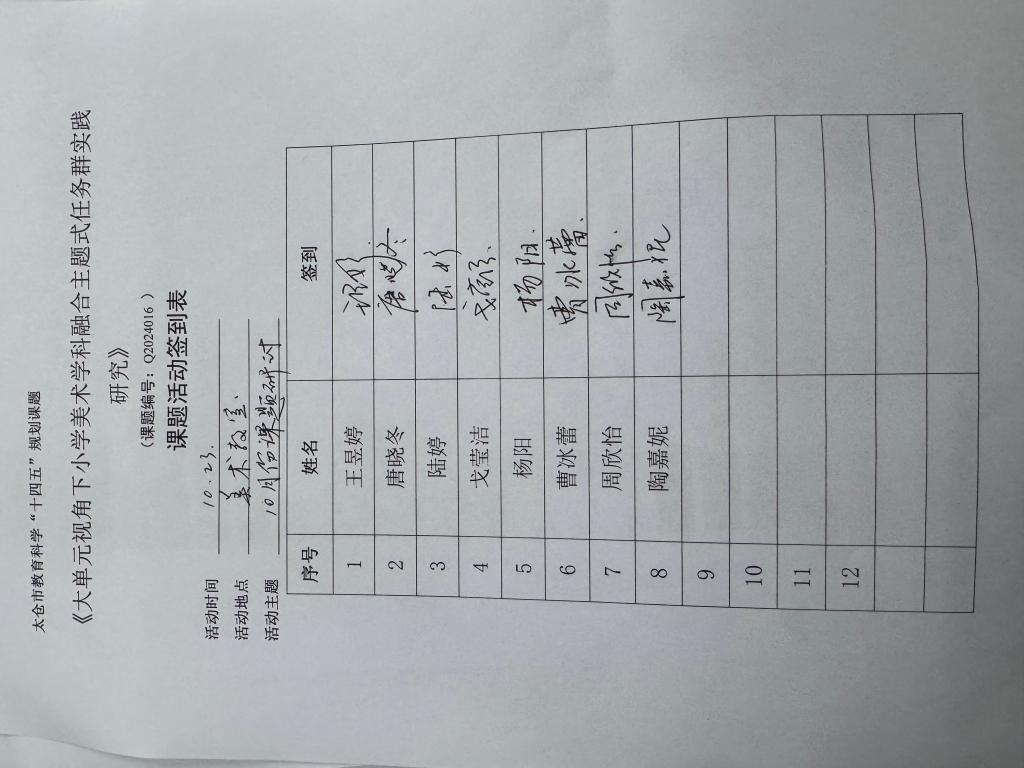 太仓市教育科学“十四五”规划课题
《大单元视角下小学美术学科融合主题式任务群实践
研究》
（课题编号：Q2024016 ）
课题活动签到表
活动时间 10.23.
活动地点 美术教室、
活动主题 10月份课题研讨
序号 姓名 签到
1 王昱婷
2 唐晓冬 唐晓冬
3 陆婷 陆婷
4 戈莹洁
5 杨阳 杨阳.
6 曹冰蕾 曹冰蕾.
7 周欣怡 周欣怡、
8 陶嘉妮 陶嘉妮
9
10
11
12